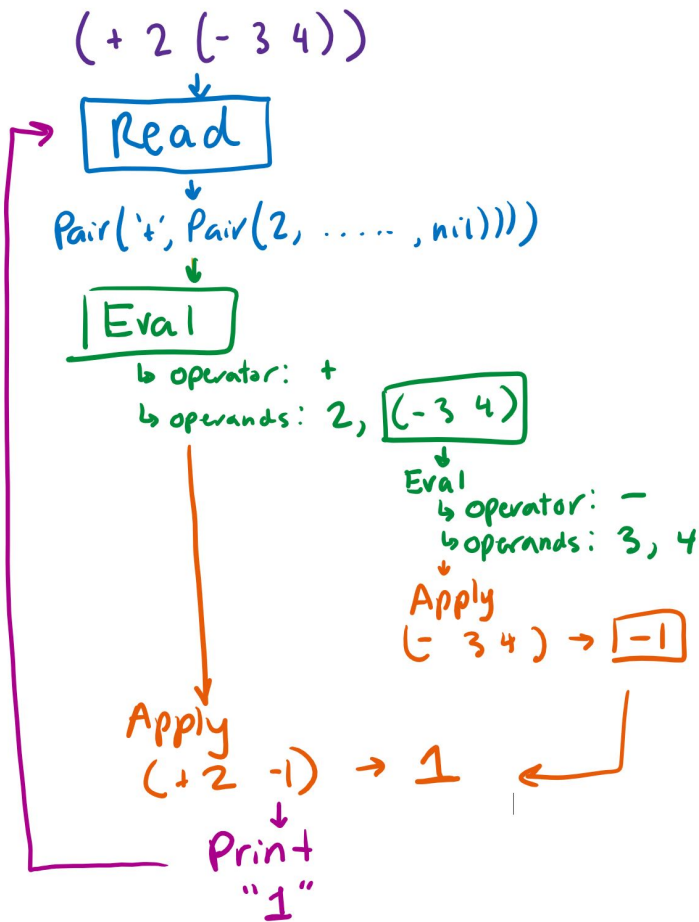 (+ 2 (- 3 4))
Read
Pair('+', Pair(2, ....., nil))))
Eval
↳ operator: +
↳ operands: 2, (- 3 4)
Eval
↳ operator: -
↳ operands: 3, 4
Apply
(- 3 4) → -1
Apply
(+ 2 -1) → 1
Print
"1"